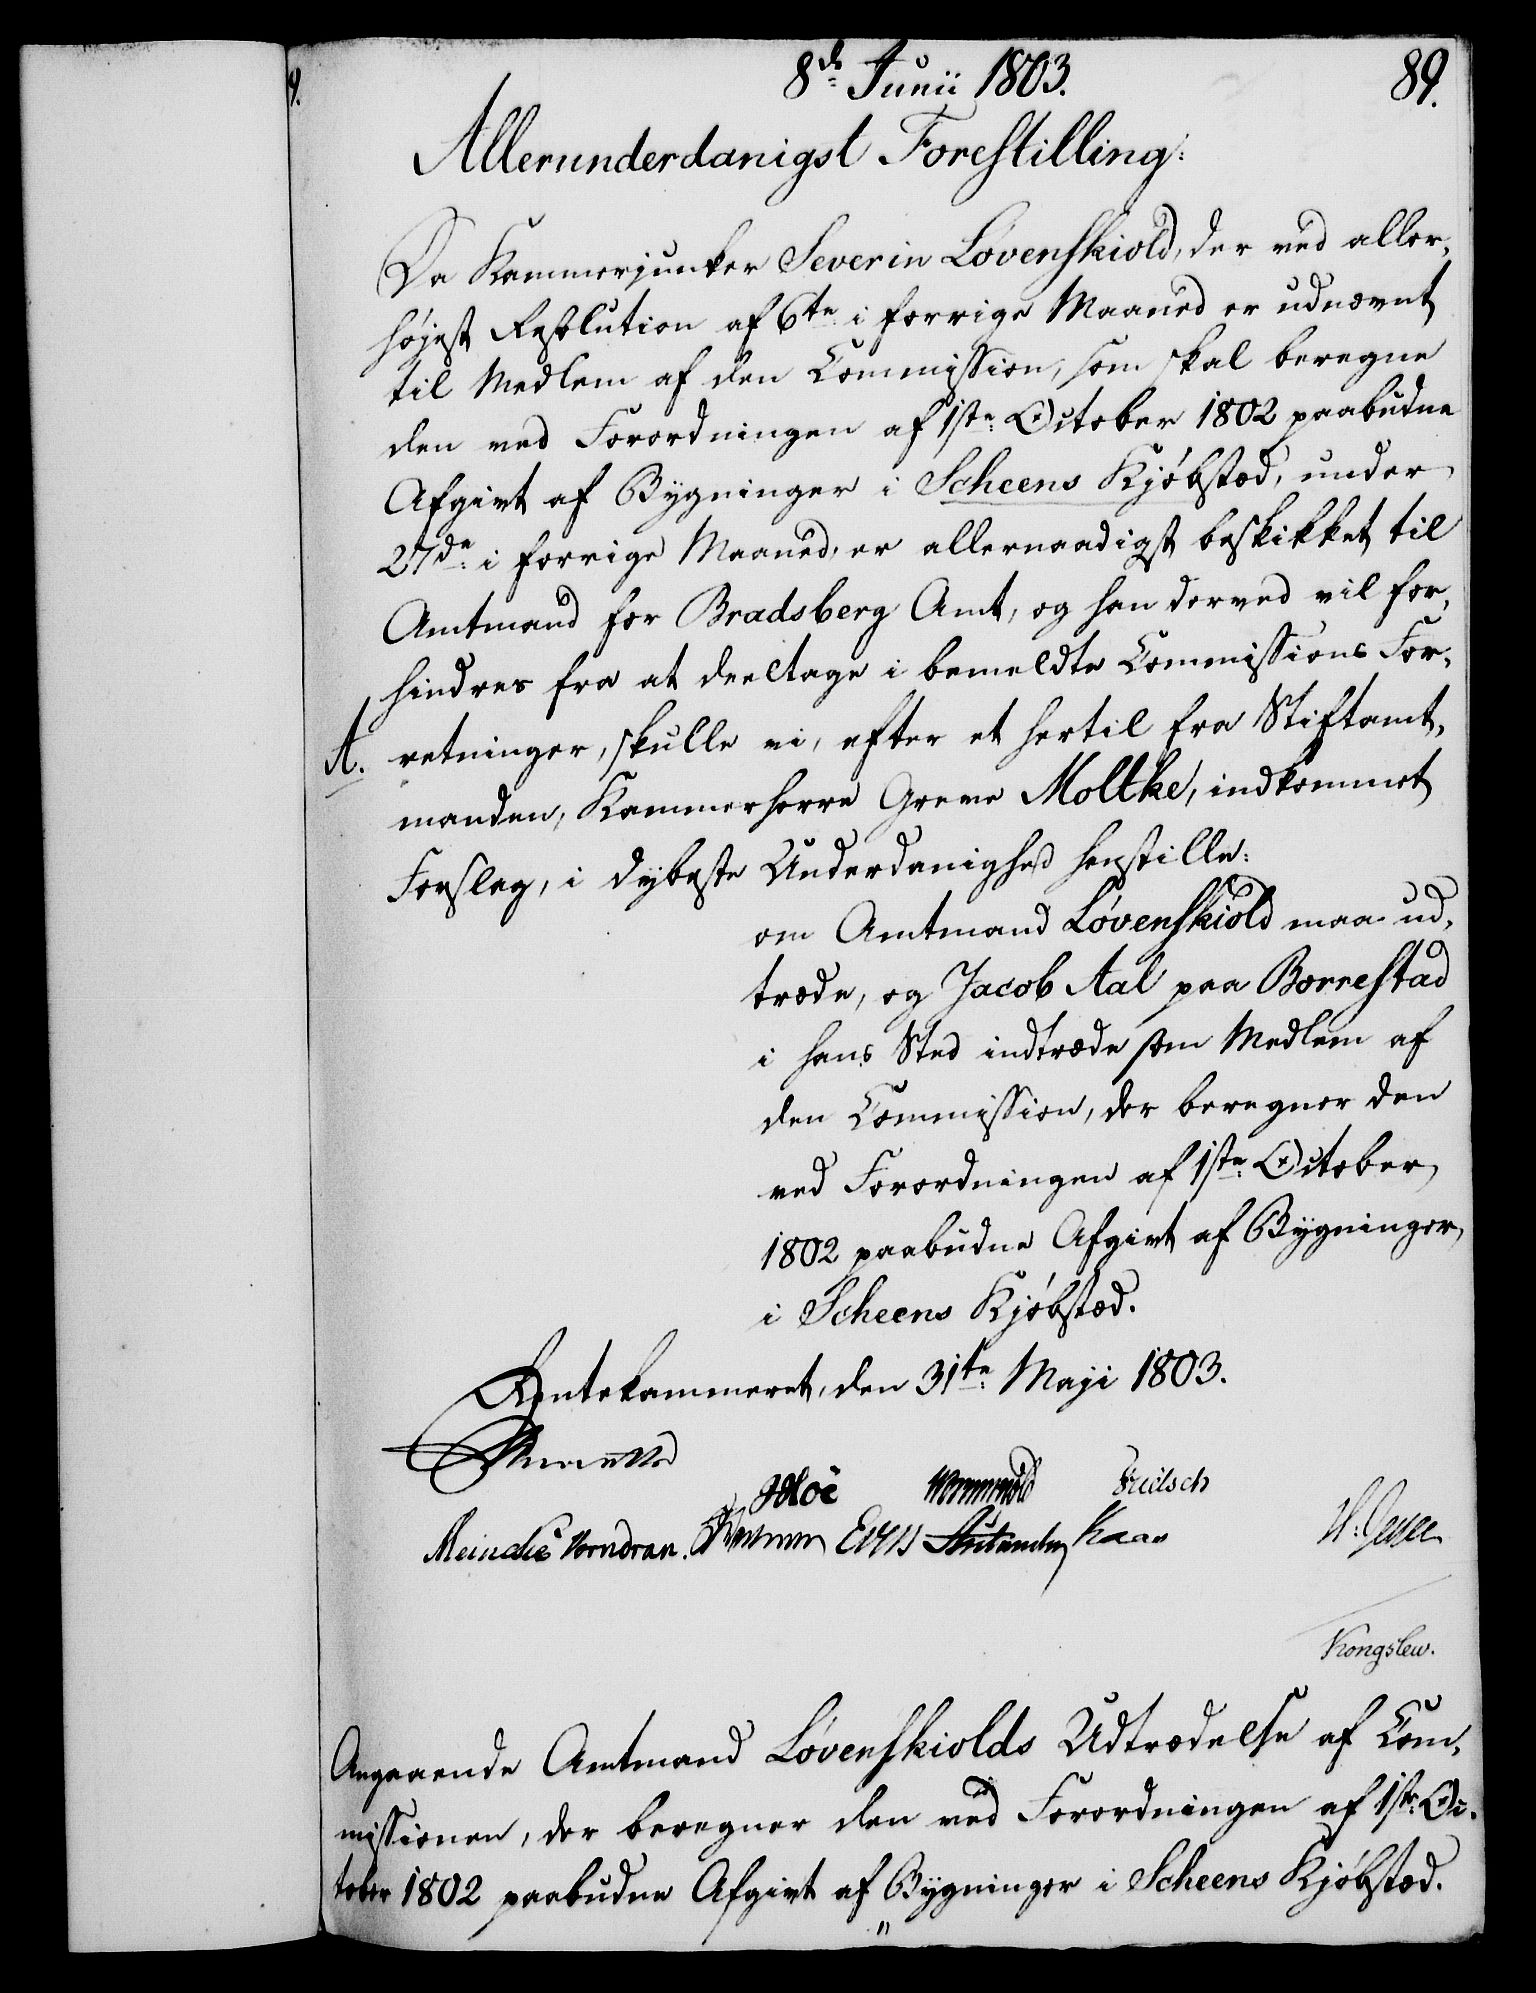 8de Junii 1803.
89.
Allerunderdanigst Forestilling:
Da Kammerjunker Severin Løvenskiold, der ved aller-
højest Resolution af 6te i forrige Maaned er udnævnt
til Medlem af den Commission, som skal beregne
den ved Forordningen af 1ste October 1802 paabudne
Afgivt af Bygninger i Scheens Kjøbstæd, under
27de i forrige Maaned, er allernaadigst beskikket til
Amtmand for Bradsberg Amt, og han derved vil for-
hindres fra at deeltage i bemeldte Commissions For-
A. retninger, skulle vi, efter et hertil fra Stiftamt-
manden, Kammerherre Greve Moltke, indkommet
Forslag, i dybeste Underdanighed henstille:
om Amtmand Løvenskiold maa ud-
træde, og Jacob Aal paa Borrestad
i hans Sted indtræde som Medlem af
den Commission, der beregner den
ved Forordningen af 1ste October
1802 paabudne Afgivt af Bygninger
i Scheens Kjøbstæd.
Rentekammeret, den 31te Maji 1803.
Reventlow
Hoë Wormskiold Fridsch
Meincke Vorndran. Kaas
Kongslew.
Angaaende Amtmand Løvenskiolds Udtrædelse af Com-
missionen, der beregner den ved Forordningen af 1ste Oc-
tober 1802 paabudne Afgivt af Bygninger i Scheens Kjøbstæd.
"